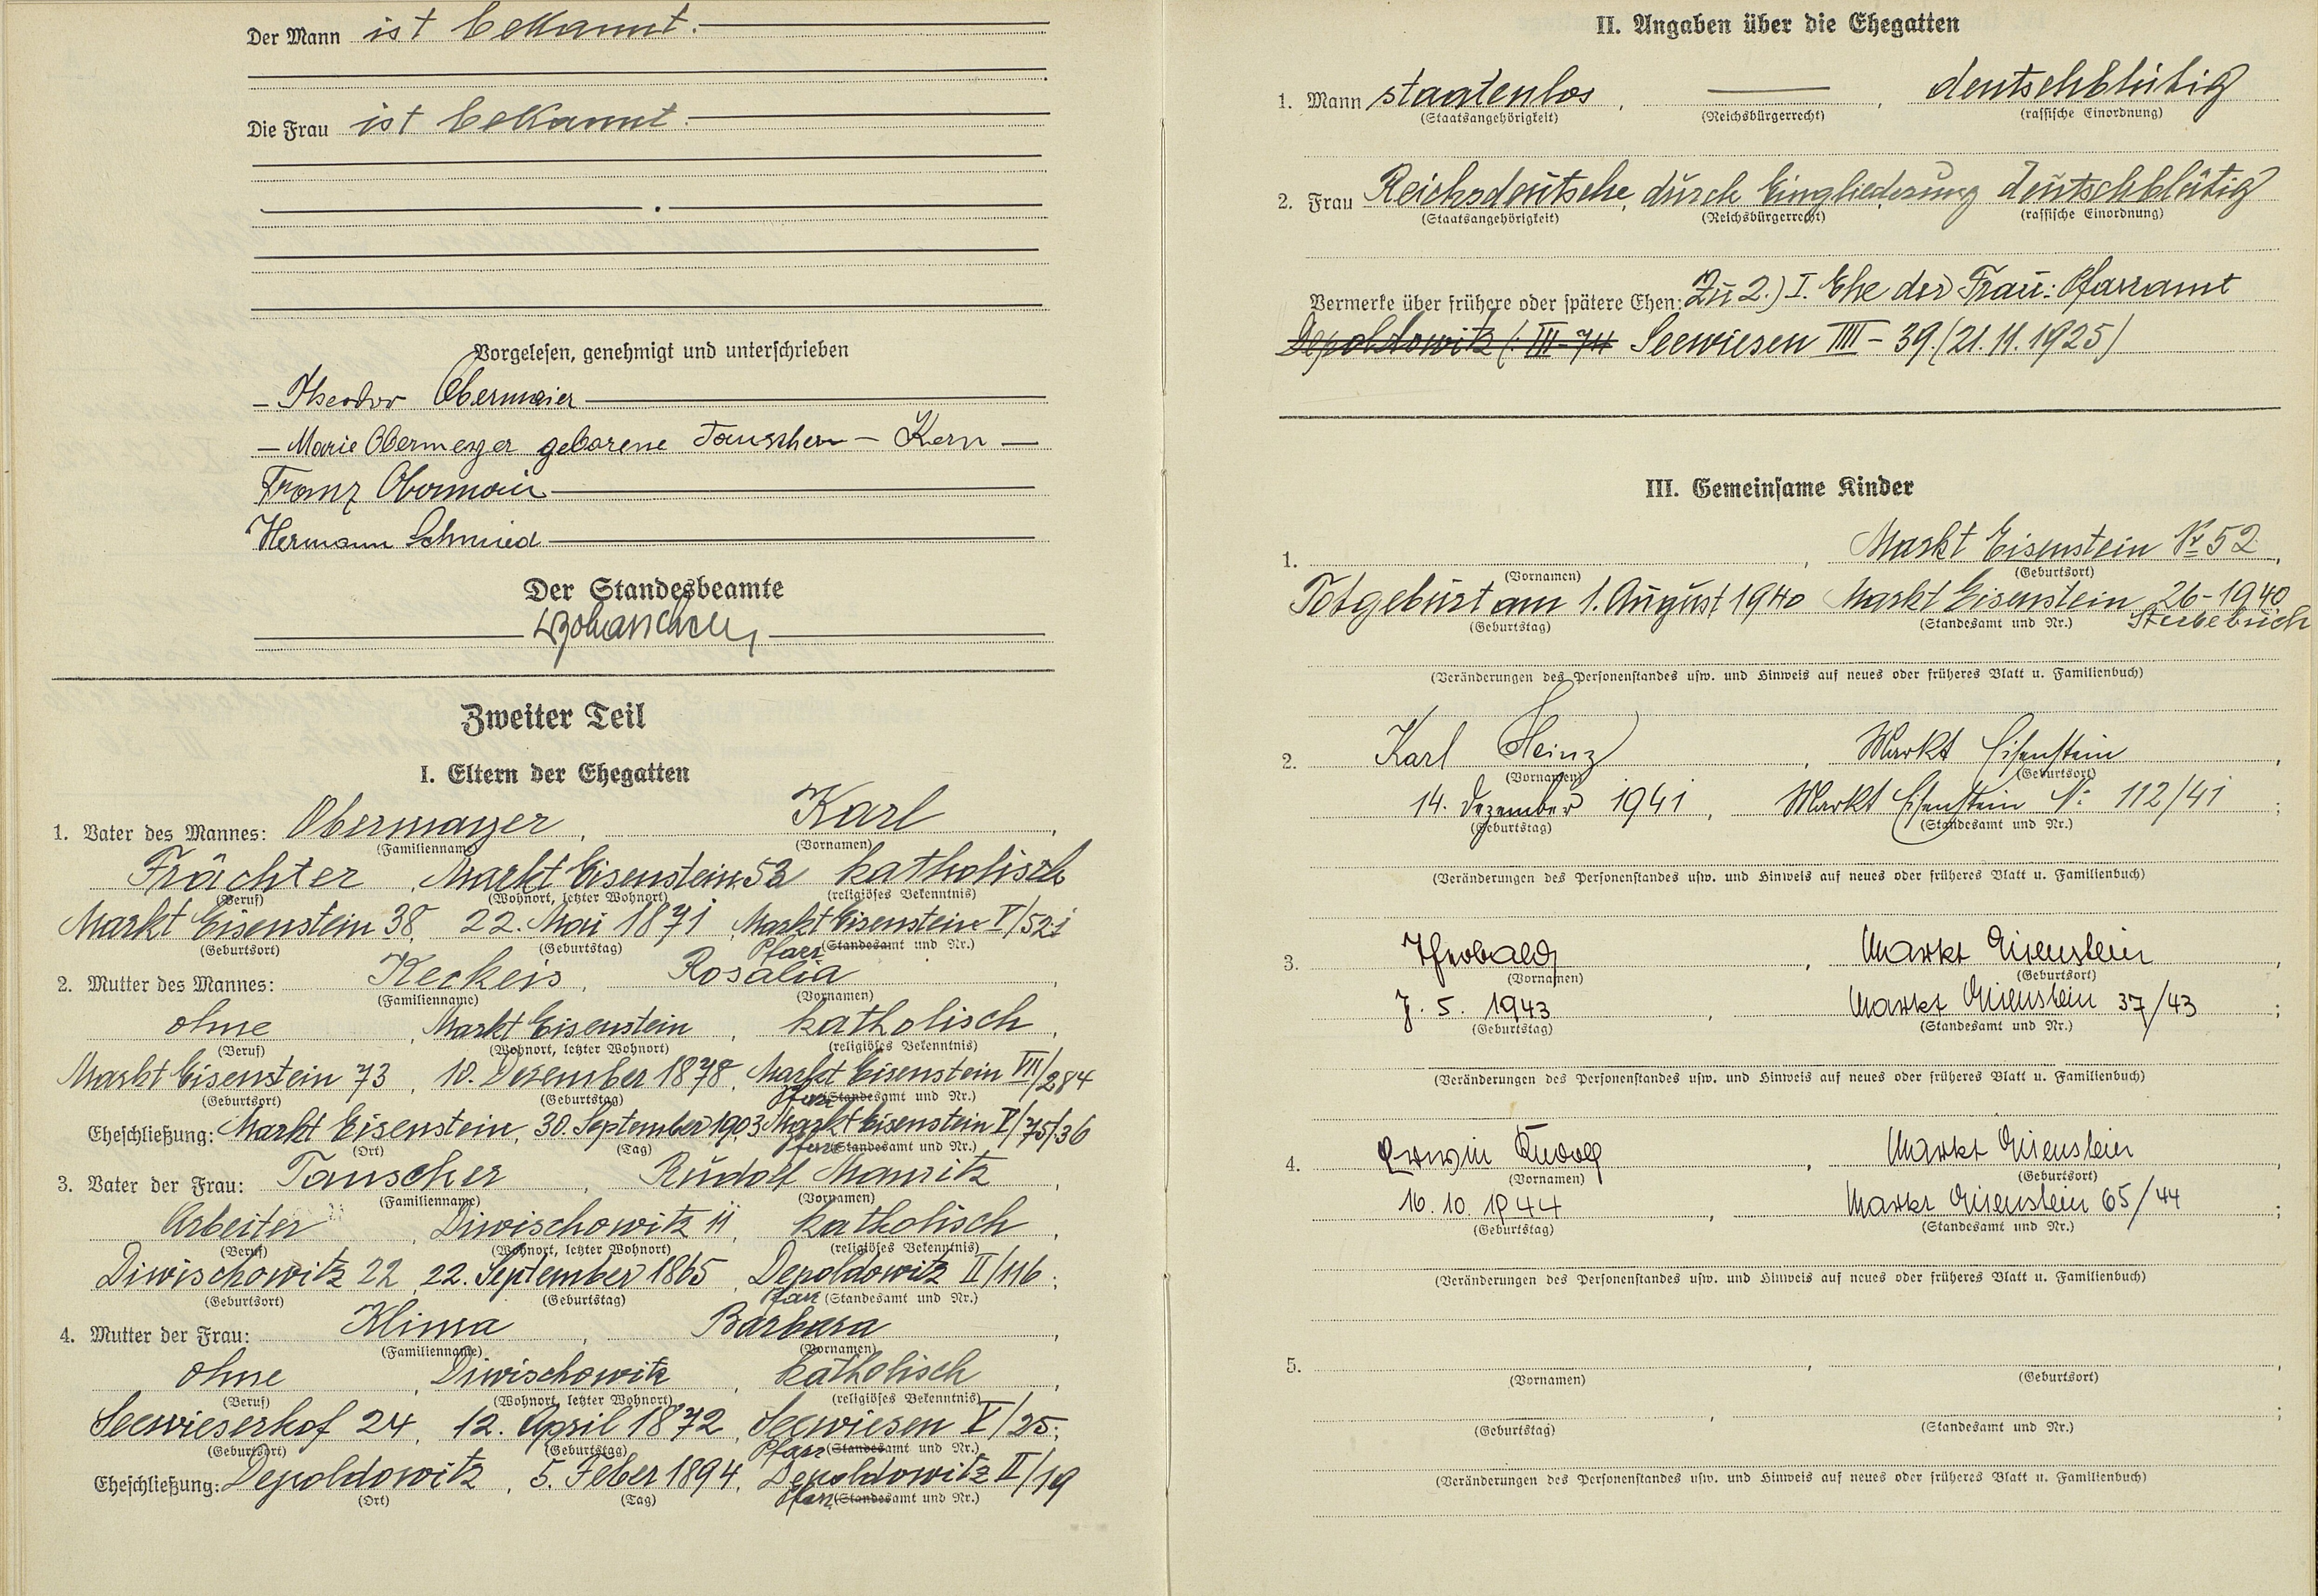 Der Mann ist bekannt.
Die Frau ist bekannt.
Vorgelesen, genehmigt und unterschrieben
Theodor Obermaier
Marie Obermeyer geborene Tauscher – Kern
Franz Obermaier
Hermann Schmied
Der Standesbeamte
Zweiter Teil
I. Eltern der Ehegatten
1. Vater des Mannes: Obermayer, Karl
(Familienname) (Vornamen)
Frächter, Markt Eisenstein 52 katholisch
(Beruf) (Wohnort, letzter Wohnort) (religiöses Bekenntnis)
Markt Eisenstein 38, 22. Mai 1871, Markt Eisenstein V/521
(Geburtsort) (Geburtstag) Pfarr (Standesamt und Nr.)
2. Mutter des Mannes: Keckeis, Rosalia
(Familienname) (Vornamen)
ohne, Markt Eisenstein, katholisch,
(Beruf) (Wohnort, letzter Wohnort) (religiöses Bekenntnis)
Markt Eisenstein 73, 10. Dezember 1878, Markt Eisenstein VII/284
(Geburtsort) (Geburtstag) Pfarr (Standesamt und Nr.)
Eheschließung: Markt Eisenstein, 30. September 1903 Markt Eisenstein V/75/36
(Ort) (Tag) Pfarr (Standesamt und Nr.)
3. Vater der Frau: Tauscher, Rudolf Mauritz,
(Familienname) (Vornamen)
Arbeiter, Diwischowitz 11, katholisch,
(Beruf) (Wohnort, letzter Wohnort) (religiöses Bekenntnis)
Diwischowitz 22, 22. September 1865, Depoldowitz II/116;
(Geburtsort) (Geburtstag) Pfarr (Standesamt und Nr.)
4. Mutter der Frau: Klima, Barbara,
(Familienname) (Vornamen)
ohne, Diwischowitz, katholisch,
(Beruf) (Wohnort, letzter Wohnort) (religiöses Bekenntnis)
Seewieserhof 24, 12. April 1872, Seewiesen V/25;
(Geburtsort) (Geburtstag) Pfarr (Standesamt und Nr.)
Eheschließung: Depoldowitz, 5. Feber 1894, Depoldowitz II/19
(Ort) (Tag) Pfarr (Standesamt und Nr.)
II. Angaben über die Ehegatten
1. Mann staatenlos, —, deutschblütig
(Staatsangehörigkeit) (Reichsbürgerrecht) (rassische Einordnung)
2. Frau Reichsdeutsche, durch Eingliederung deutschblütig
(Staatsangehörigkeit) (Reichsbürgerrecht) (rassische Einordnung)
Vermerke über frühere oder spätere Ehen: Zu 2.) I. Ehe der Frau: Pfarramt
Depoldowitz (: III-74 Seewiesen IIII – 39. (21.11.1925)
III. Gemeinsame Kinder
1. , Markt Eisenstein Nr 52,
(Vornamen) (Geburtsort)
Totgeburt am 1. August 1940 Markt Eisenstein 26-1940
(Geburtstag) (Standesamt und Nr.) Sterbebuch
(Veränderungen des Personenstandes usw. und Hinweis auf neues oder früheres Blatt u. Familienbuch)
2. Karl Heinz, Markt Eisenstein,
(Vornamen) (Geburtsort)
14. Dezember 1941, Markt Eisenstein Nr 112/41;
(Geburtstag) (Standesamt und Nr.)
(Veränderungen des Personenstandes usw. und Hinweis auf neues oder früheres Blatt u. Familienbuch)
3. Theobald, Markt Eisenstein,
(Vornamen) (Geburtsort)
7. 5. 1943, Markt Eisenstein 37/43;
(Geburtstag) (Standesamt und Nr.)
(Veränderungen des Personenstandes usw. und Hinweis auf neues oder früheres Blatt u. Familienbuch)
4. Erwin Rudolf, Markt Eisenstein,
(Vornamen) (Geburtsort)
16. 10. 1944, Markt Eisenstein 65/44;
(Geburtstag) (Standesamt und Nr.)
(Veränderungen des Personenstandes usw. und Hinweis auf neues oder früheres Blatt u. Familienbuch)
5. , ,
(Vornamen) (Geburtsort)
, ;
(Geburtstag) (Standesamt und Nr.)
(Veränderungen des Personenstandes usw. und Hinweis auf neues oder früheres Blatt u. Familienbuch)